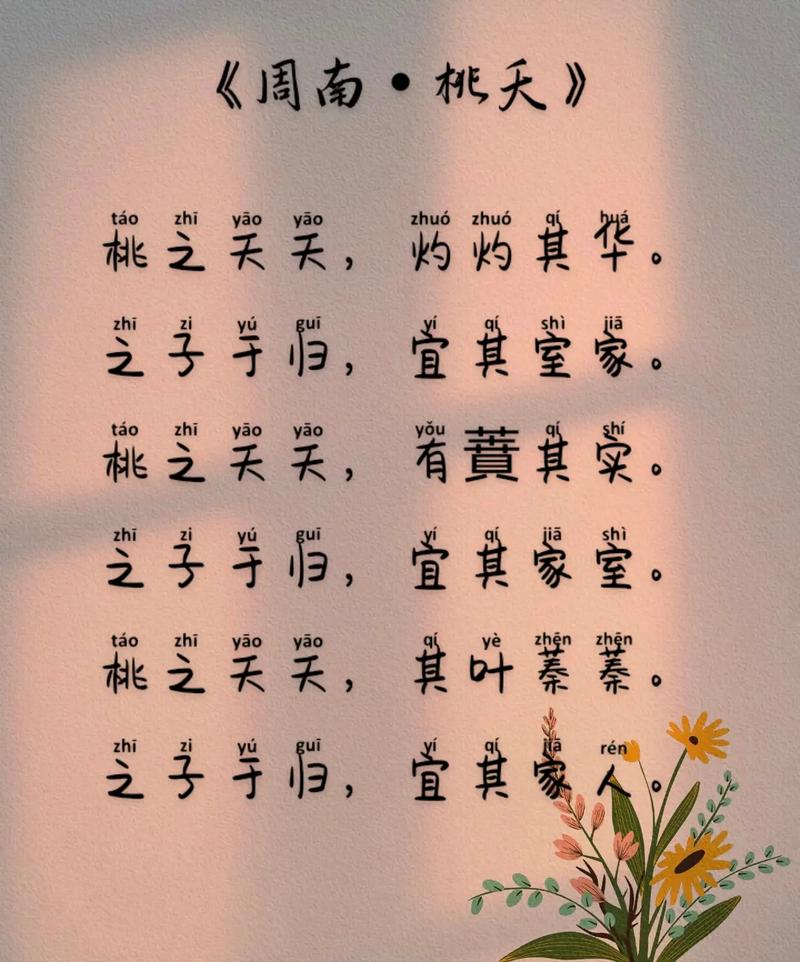 《周南•桃夭》
táo zhī yāo yāo zhuó zhuó qí huá
桃之夭夭，灼灼其华。
zhī zi yú guī yí qí shì jiā
之子于归，宜其室家。
táo zhī yāo yāo yǒu qí shí
桃之夭夭，有蕡其实。
zhī zi yú guī yí qí jiā shì
之子于归，宜其家室。
táo zhī yāo yāo qí yè zhēn zhēn
桃之夭夭，其叶蓁蓁。
zhī zi yú guī yí qí jiā rén
之子于归，宜其家人。